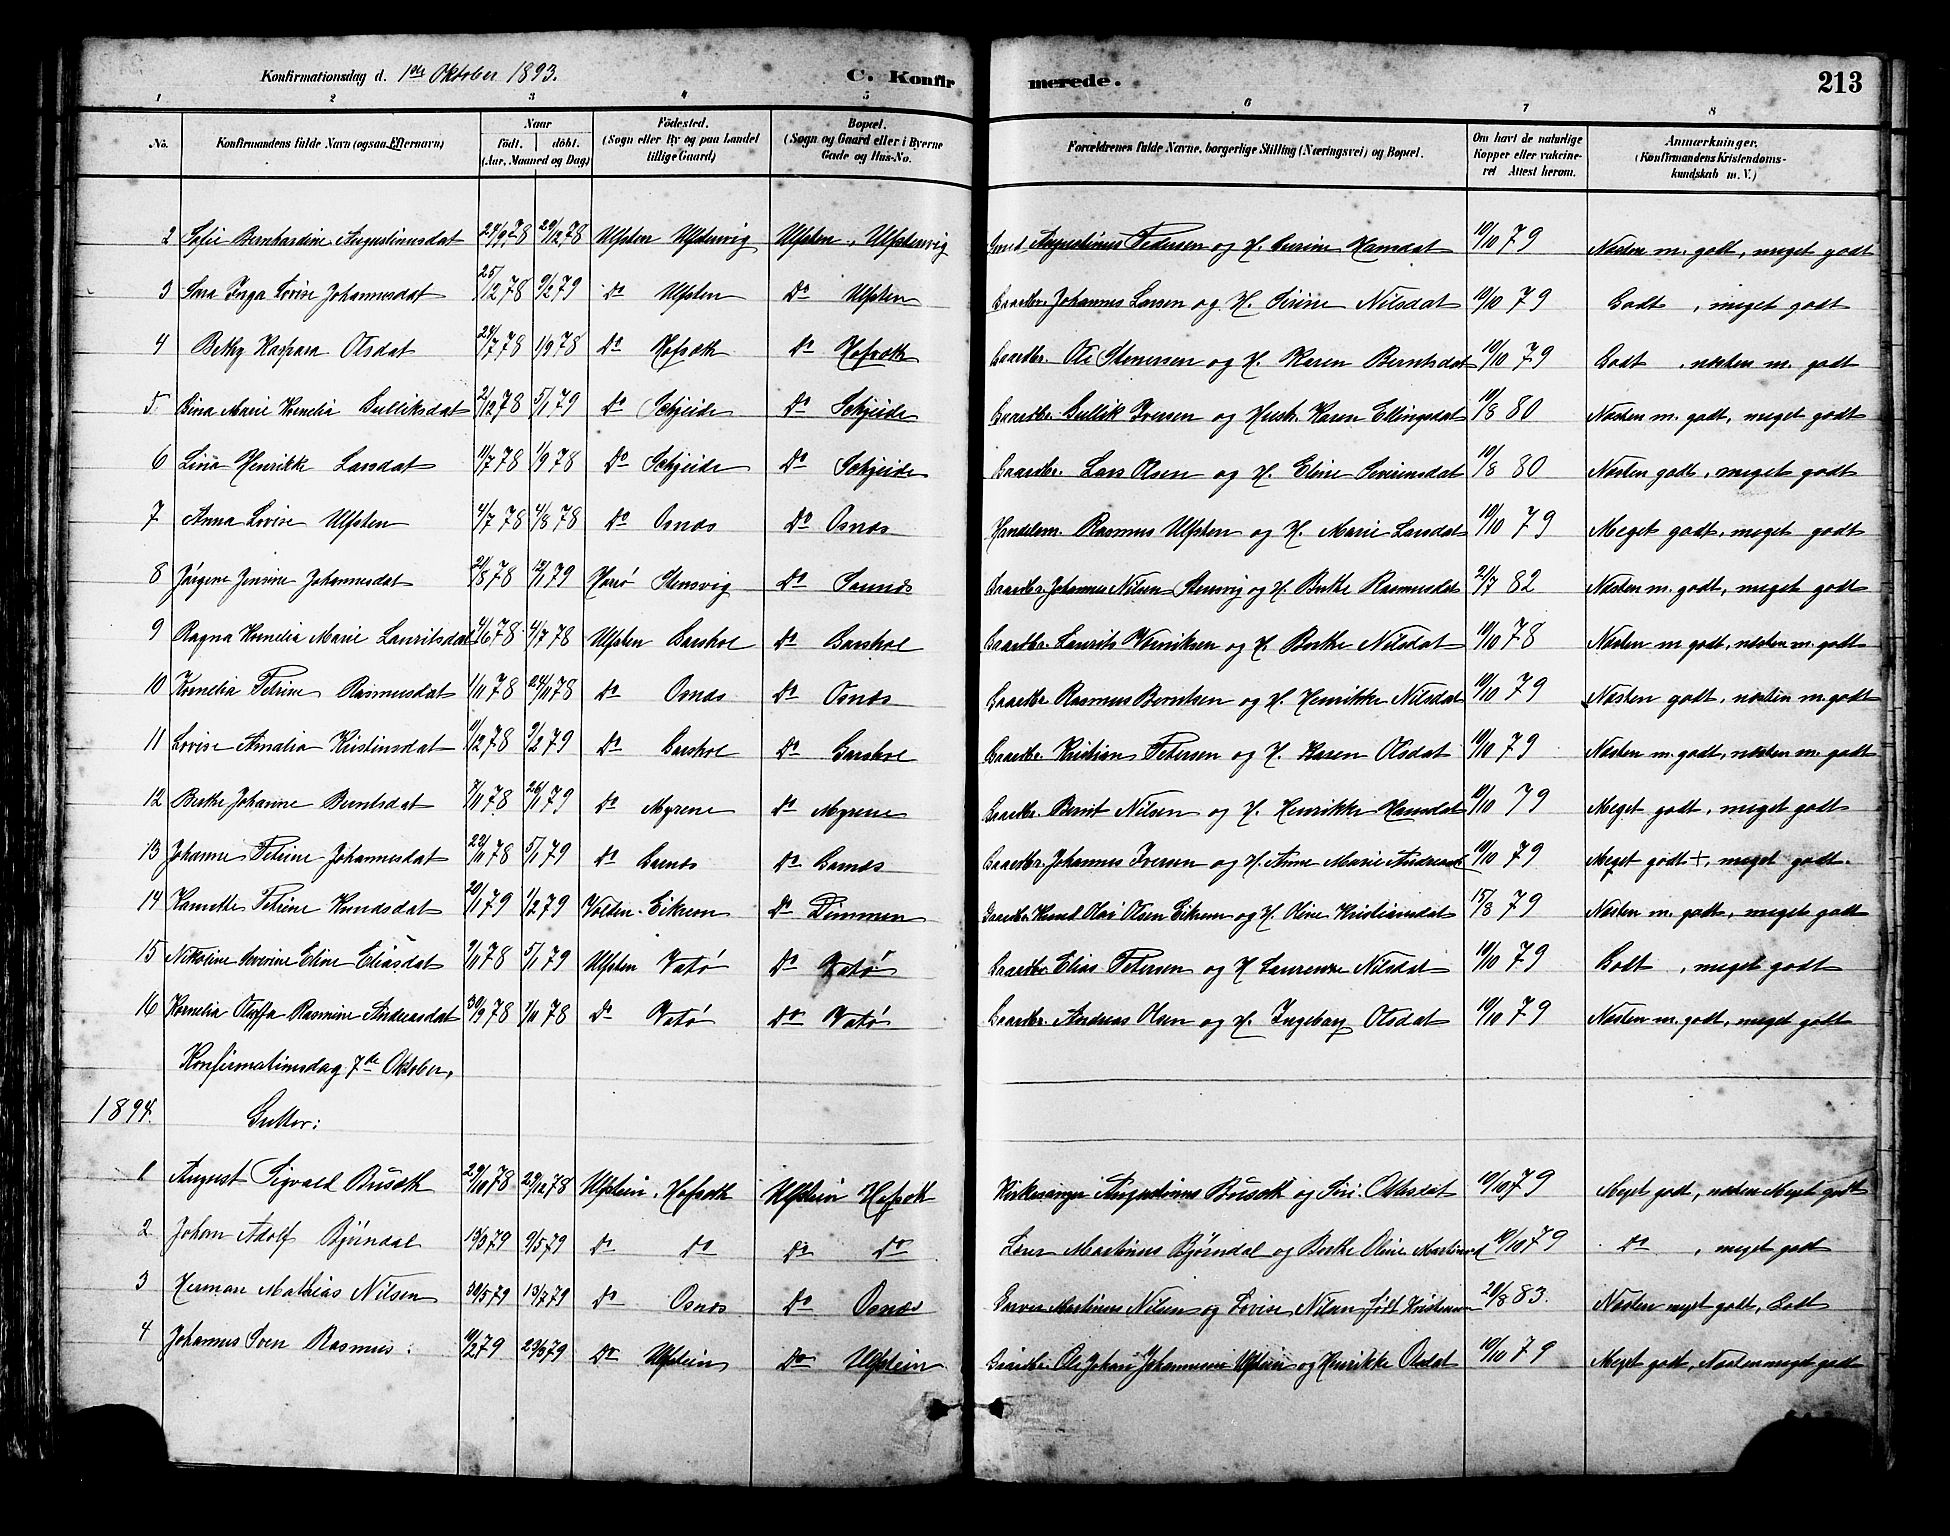 Konfirmationsdag d. 1ste Oktober 1893. C. Konfirmerede. 213
1 2 3 4 5 6 7 8
No. Konfirmandens fulde Navn (ogsaa Efternavn) Naar født. døbt. (Aar, Maaned og Dag) Fødested. (Sogn eller By og paa Landet tillige Gaard) Bopæl. (Sogn og Gaard eller i Byerne Gade og Hus-No. Forældrenes fulde Navne, borgerlige Stilling (Næringsvei) og Bopæl. Om havt de naturlige Kopper eller vakcineret Attest herom. Anmærkninger. (Konfirmandens Kristendomskundskab m. V.)
2 Sofie Bernhardine Augustinusdat 24/9 78 29/12 78 Ulfsten Ulfstenvig Ulfsten, Ulfstenvig Augustinus Pedersen og H. Hansdat 10/10 79 Næsten m. godt, meget godt
3 Sara Inga Lovise Johannesdat 25/12 78 9/2 79 Do Ulfsten Do Ulfsten Gaardbr. Johannes Larsen og H. Sirine Nilsdat 10/10 79 Godt, meget godt
4 Bethy Kaspara Olsdat 24/7 78 1/9 78 Do Hofsæth Do Hofsæth Gaardbr. Ole Stenersen og H. Karen Berntsdat 10/10 79 Godt, næsten m. godt
5 Bina Marie Kornelia Gulliksdat 2/12 78 5/1 79 Do Schjeide Do Schjeide Gaardbr. Gullik Iversen og Hust. Karen Ellingsdat 10/8 80 Næsten m. godt, meget godt
6 Lina Henrikke Larsdat 11/7 78 1/9 78 Do Schjeide Do Schjeide Gaardbr. Lars Olsen og H. Eline Severinsdat 10/8 80 Næsten godt, meget godt
7 Anna Lovise Ulfsten 4/7 78 4/8 78 Do Osnæs Do Osnæs Handelsm. Rasmus Ulfsten og H. Marie Larsdat 10/10 79 Meget godt, meget godt
8 Jørgine Jensine Johannesdat 21/8 78 12/1 79 Harø Stensvig Do Saunæs Gaardbr. Johannes Nilsen Stensvig og H. Berthe Rasmusdat 21/7 82 Næsten m. godt, meget godt
9 Ragna Kornelia Marie Lauritsdat 4/6 78 4/7 78 Ulfsten Garshol Do Garshol Gaardbr. Laurits Henriksen og H. Berthe Nilsdat 10/10 78 Næsten m godt, næsten m. godt
10 Kornelia Petrine Rasmusdat 1/11 78 24/11 78 Do Osnæs Do Osnæs Gaardbr. Rasmus Berntsen og H. Henrikke Nilsdat 10/10 79 Næsten godt, næsten m. godt
11 Lovise Amalia Kristinsdat 11/12 78 9/2 79 Do Garshol Do Garshol Gaardbr. Kristian Petersen og H. Karen Olsdat 10/10 79 Næsten m. godt, næsten m. godt
12 Berthe Johanne Berntsdat 7/11 78 26/1 79 Do Myrene Do Myrene Gaardbr. Bernt Nilsen og H. Henrikke Hansdat 10/10 79 Meget godt, meget godt
13 Johanne Petrine Johannesdat 22/11 78 5/1 79 Do Do Gaardbr. Johannes Iversen og H. Anne Marie 10/10 79 Meget godt +, meget godt.
14 Petrine Knudsdat 20/1 79 1/2 79 Volden. Eikrem Do Dimmen Gaardbr. Knud Olai Olsen Eikrem og H. Oline Kristiansdat 15/8 79 Næsten m. godt, meget godt
15 Nikoline Severine Eline Eliasdat 9/11 78 5/1 79 Ulfsten Vatø Do Vatø Gaardbr Elias Petersen og H Laurenze Nilsdat 10/10 79 Godt, meget godt
16 Kornelia Oluffa Rasmine Andreasdat 30/9 78 1/10 78 Do Vatø Do Vatø Gaardbr. Andreas Olsen og H. Ingeborg Olsdat 10/10 79 Næsten m. godt, meget godt
Konfirmationsdag 7de Oktober,
1894. Gutter:
1 August Sigvald Busæth 29/10 78 29/12 78 Ulfstein, Hofsæth Ulfstein Hofsæth Kirkesanger Augustinus Busæth og Siri 10/10 79 Meget godt, næsten Meget godt
2 Johan Adolf Bjørndal 13/3 79 9/5 79 Do Do Do Do Martinus Bjørndal og Berthe Oline 10/10 79 Do, meget godt
3 Herman Mathias Nilsen 30/5 79 13/7 79 Do Osnæs Do Osnæs Garver Martinus Nilsen og Lovise Nilsen født 20/8 83. Næsten meget godt, Godt
4 Johannes Sven Rasmus: 10/2 79 23/3 79 Do Ulfstein Do Ulfstein Gaardbr. Ole Johan Johannesen Ulfstein og Henrikke Olsdat 10/10 79 Meget godt, Næsten meget godt